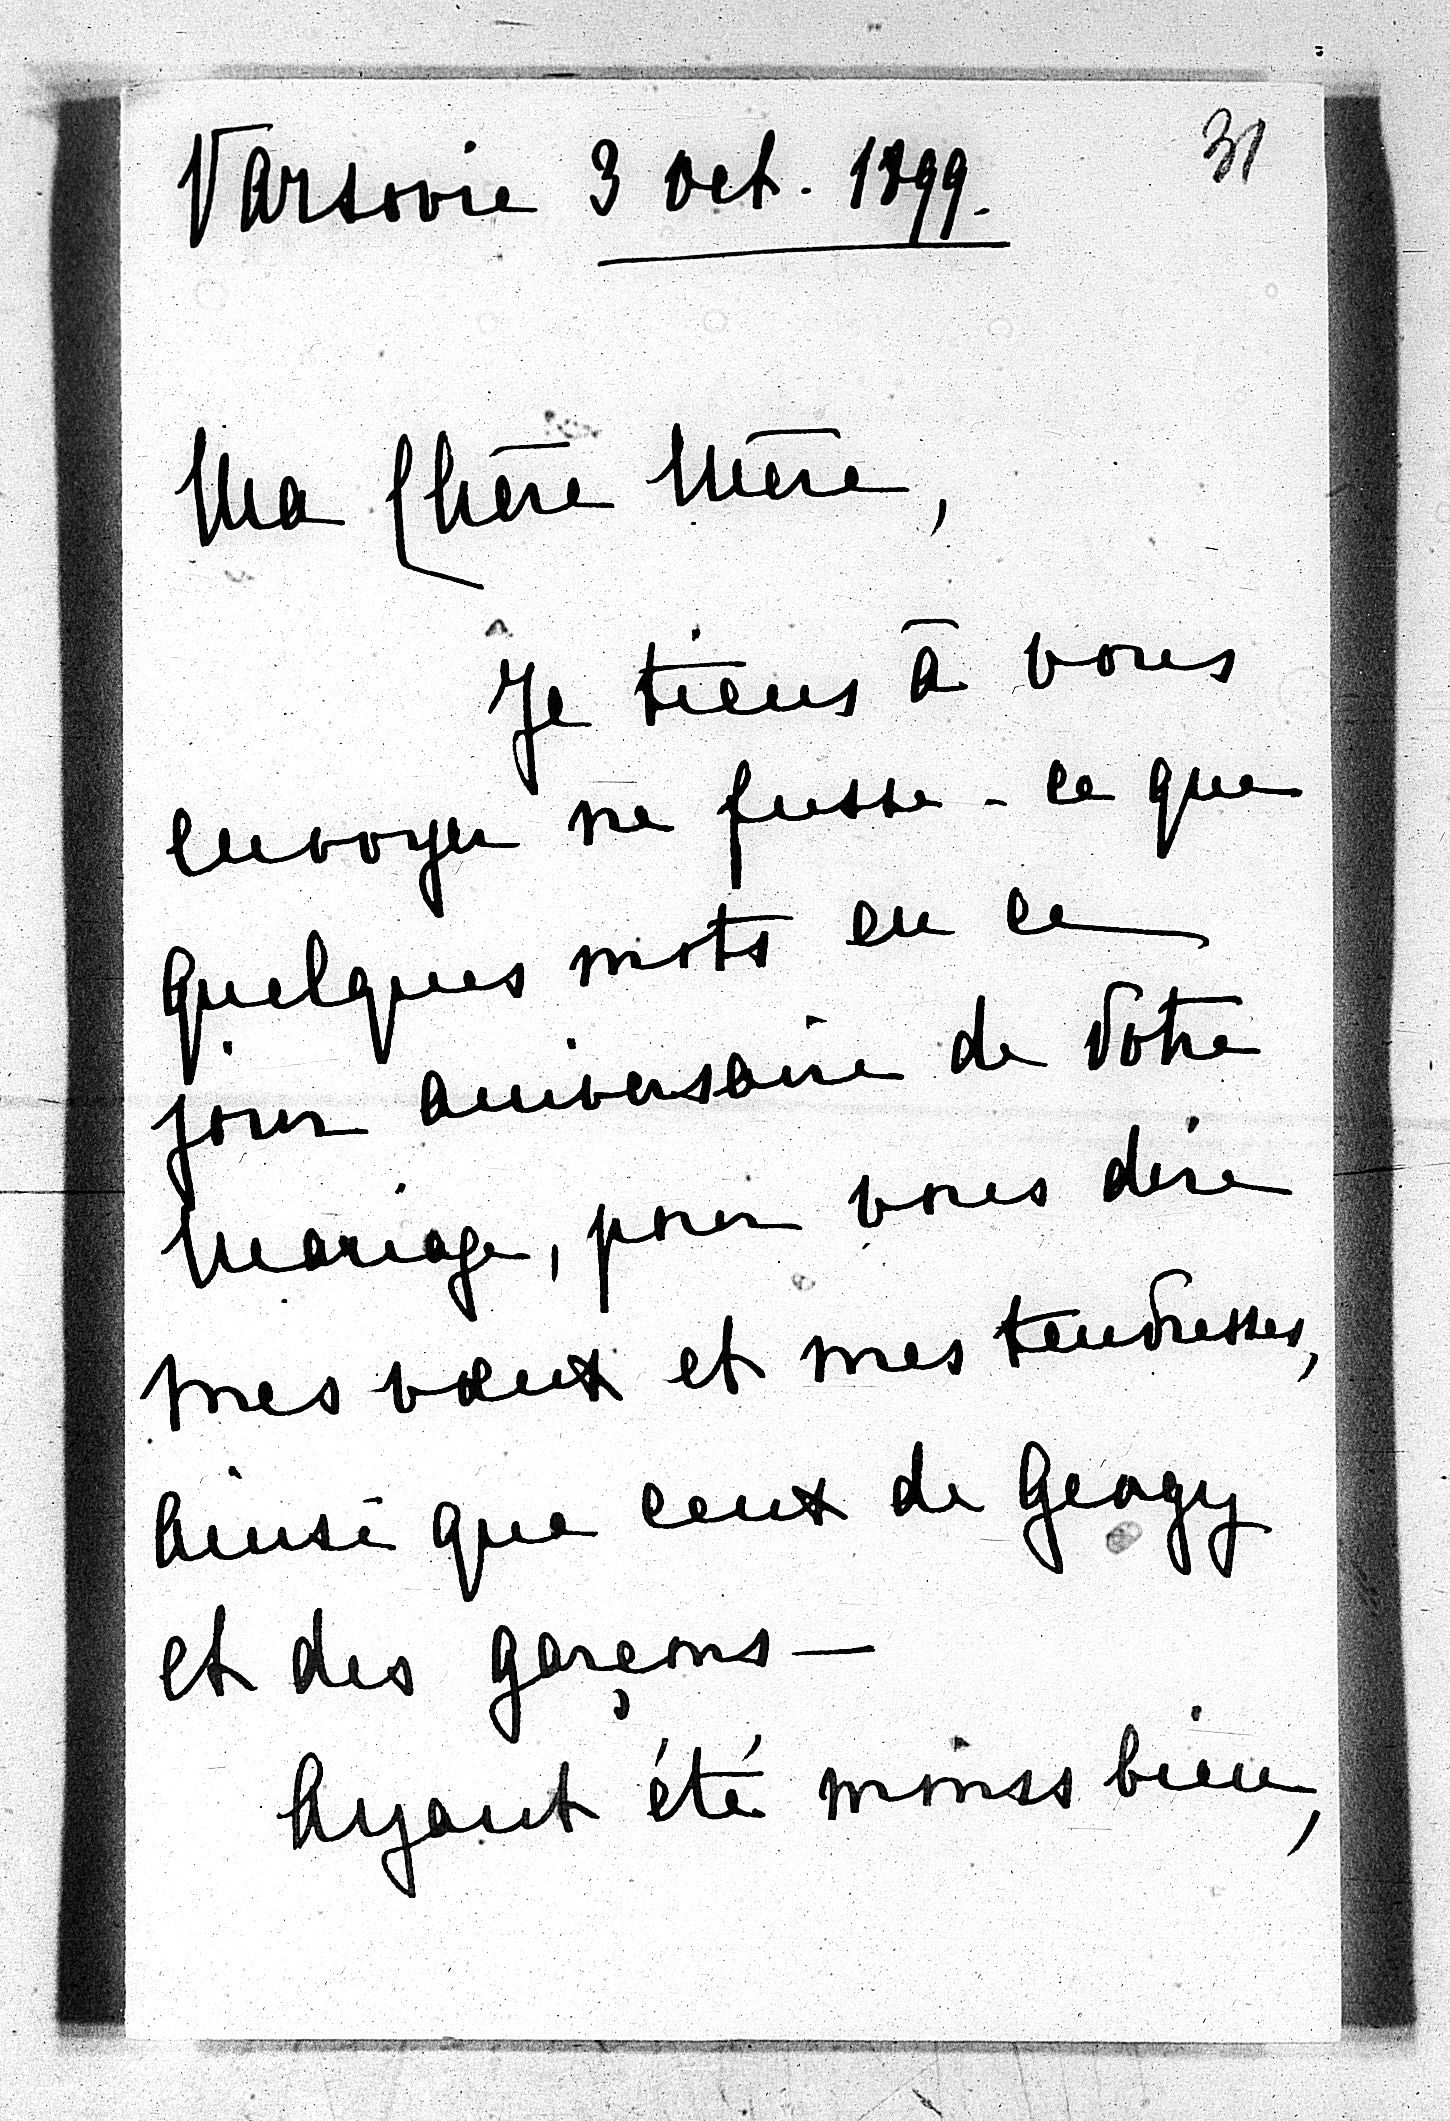 31
Varsovie 3 oct. 1899.
Ma Chère Mère,
Je tiens à vous
envoyer ne fusse-ce que
quelques mots en ce
jour aniversaire de Votre
Mariage, pour vous dire
mes vœux et mes tendresses,
Ainsi que ceux de Geogy
et des garçons —
Ayant été moins bien,